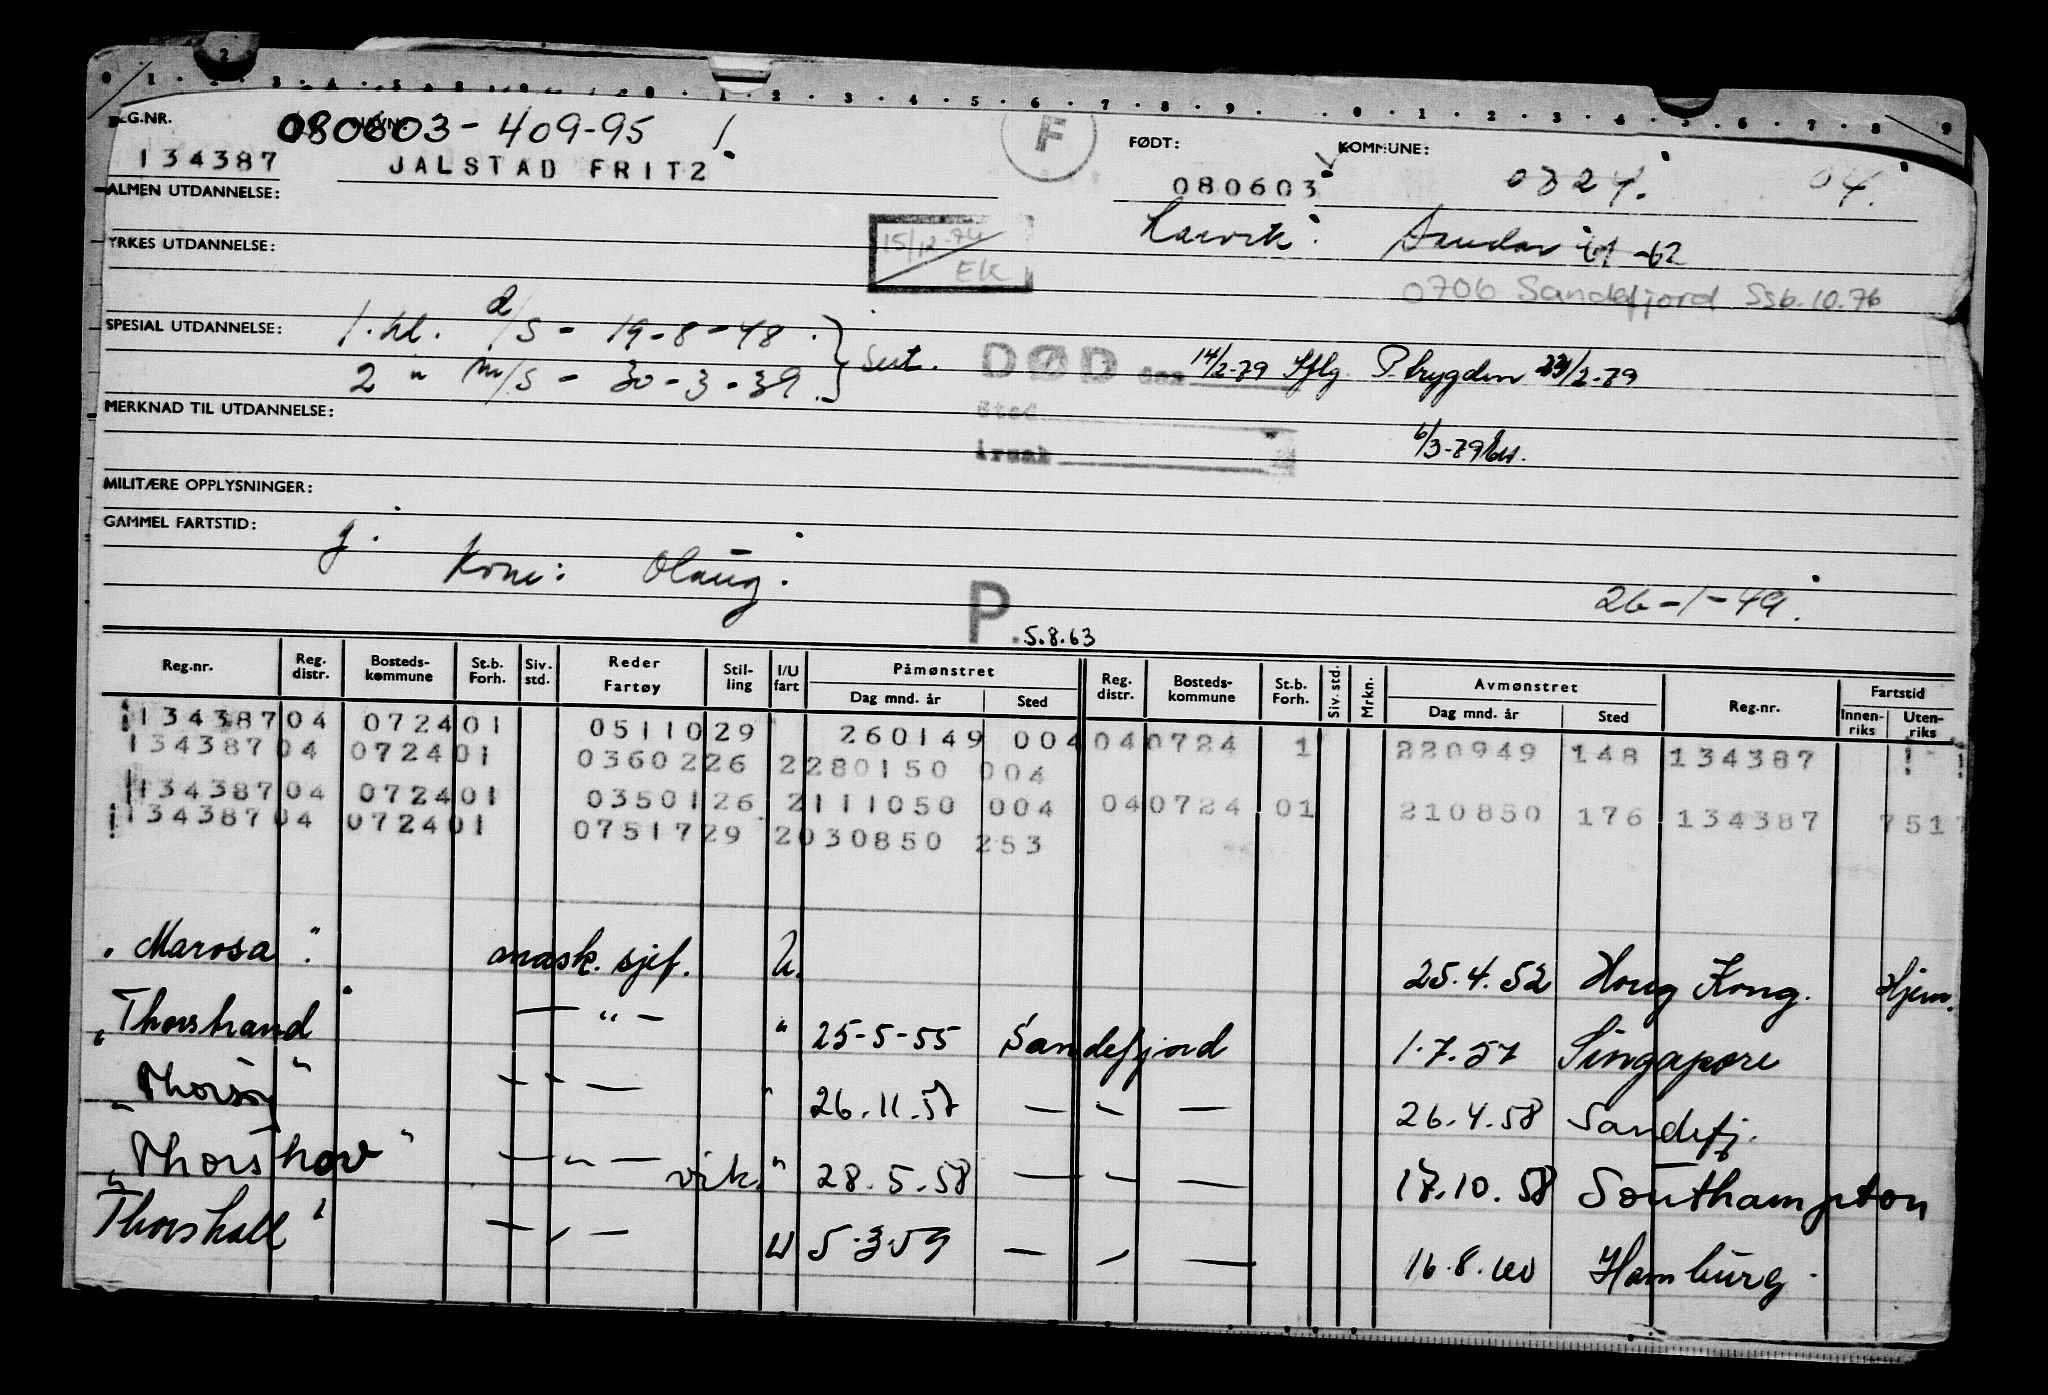 REG.NR.
NAVN:
080603-409-95
F
FØDT:
KOMMUNE:
134387
JALSTAD FRITZ
080603
04
ALMEN UTDANNELSE:
Larvik. Sandar 61-62
YRKES UTDANNELSE:
15/12-74
EK
0706 Sandefjord Ssb.10.76
SPESIAL UTDANNELSE:
1. kl. d/s - 19-8-48
2 " m/s - 30-3-39
Sert.
DØD den 14/2-79 Iflg P.trygden 23/2-79
Sted
Årsak
MERKNAD TIL UTDANNELSE:
6/3-79
MILITÆRE OPPLYSNINGER:
GAMMEL FARTSTID:
g.
Kone: Olaug.
P. 5.8.63
26-1-49.
Reg.nr. Reg. distr. Bosteds-kommune St.b. Forh. Siv. std. Reder Fartøy Stil-ling I/U fart Påmønstret Dag mnd. år Sted Reg. distr. Bosteds-kommune St.b. Forh. Siv. std. Mrkn. Avmønstret Dag mnd. år Sted Reg.nr. Fartstid Innen-riks Uten-riks
134387 04 0724 01 0511029 260149 004 04 0724 1 220949 148 134387
134387 04 0724 01 0360226 2 280150 004
134387 04 0724 01 0350126 2 111050 004 04 0724 01 210850 176 134387 751
134387 04 0724 01 0751729 2 030850 253
" Marosa " mask. sjef. U. 25.4.52 Hong Kong. Hjem.
" Thorstrand " — " — " 25-5-55 Sandefjord 1.7.57 Singapore
" Thorsøy " — " — " 26.11.57 — " — 26.4.58 Sandefj.
" Thorshov " — " — vik. " 28.5.58 — " — 17.10.58 Southampton
" Thorshall " — " — U 5.3.59 — " — 16.8.60 Hamburg.